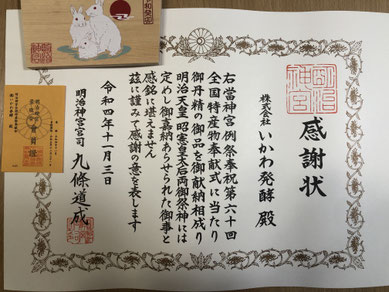 感謝状
株式会社 いかわ発酵 殿
右當神宮例祭奉祝第六十回
全国特産物奉献式に当たり
御丹精の御品を御献納相成り
明治天皇 昭憲皇太后両御祭神には
定めし御嘉納あらせられた御事と
感銘に堪えません
茲に謹みて感謝の意を表します
令和四年十一月三日
明治神宮宮司 九條道成
明治神宮